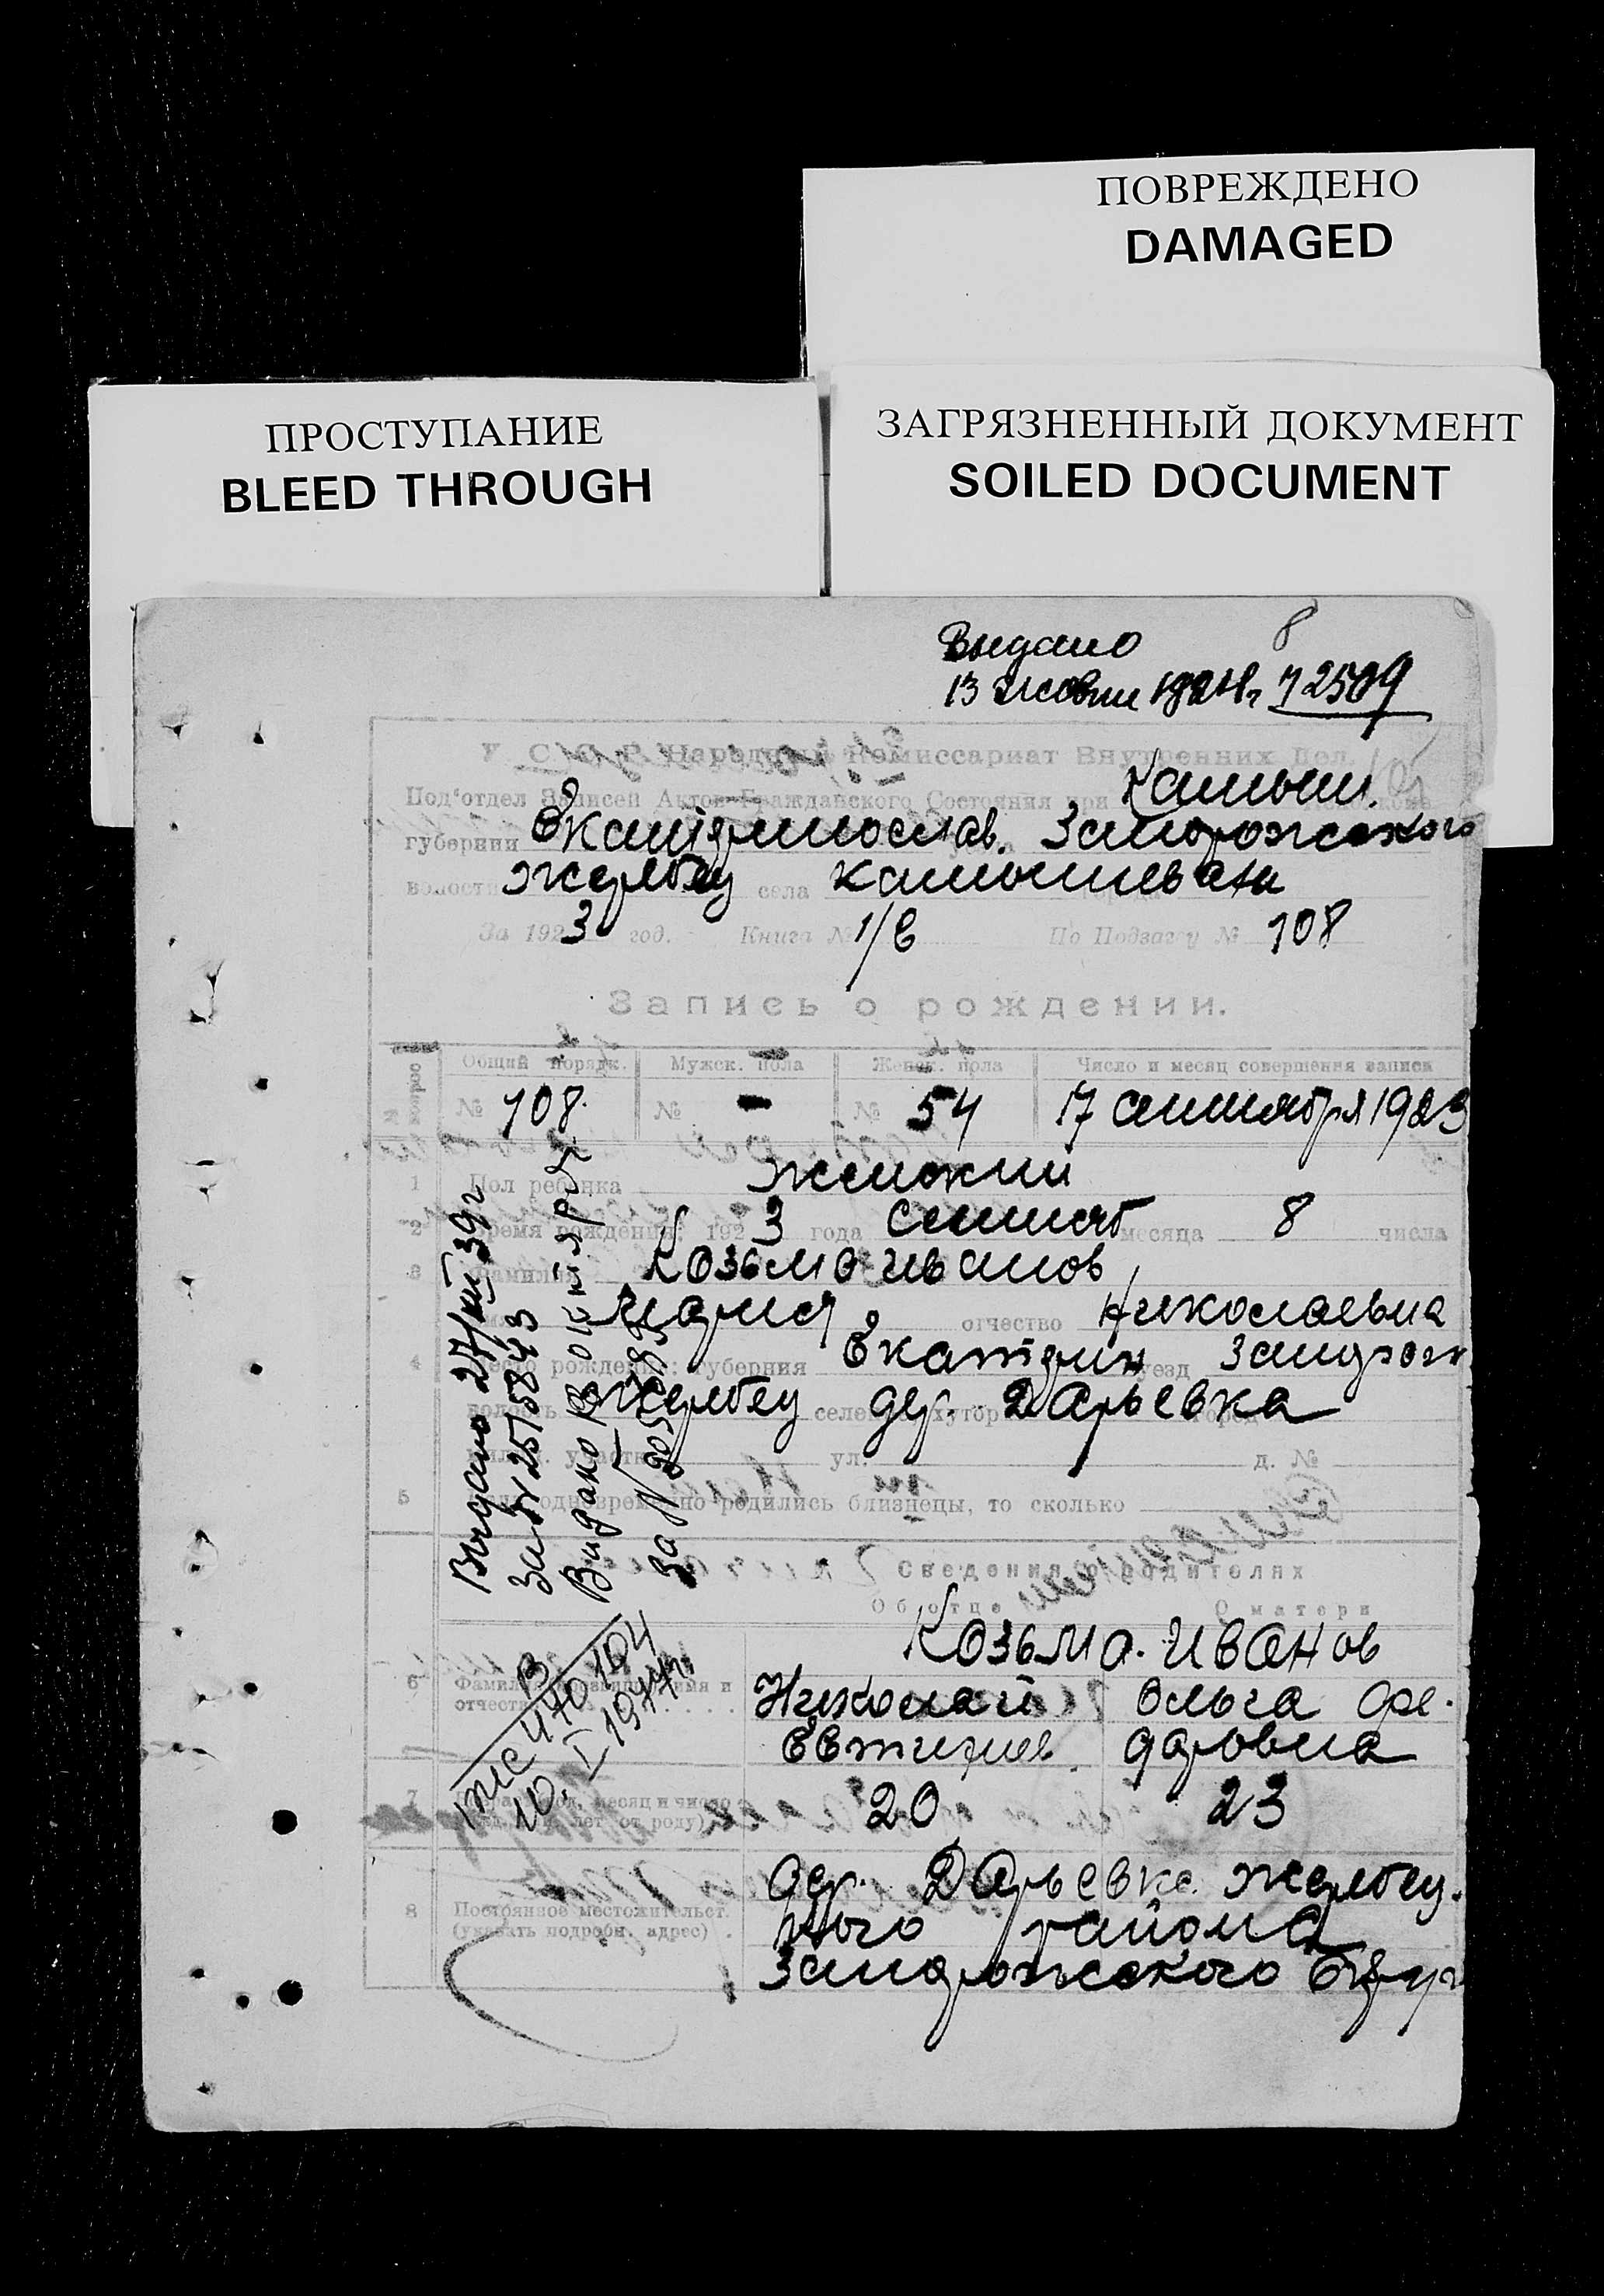 ПОВРЕЖДЕНО
DAMAGED
ПРОСТУПАНИЕ
BLEED THROUGH
ЗАГРЯЗНЕННЫЙ ДОКУМЕНТ
SOILED DOCUMENT
8
Выдано
13 2509
У. С. С. Р. Народный Комиссариат Внутренних Дел.
Под'отдел Записей Актов Гражданского Состояния при Камыш.
губернии Екатеринослав. Запорожского
волости Жеребец села Камышеваха
За 1923 год. Книга № 1/в По Подзагсу № 108
Запись о рождении.
Общий порядк. Мужск. пола Женск. пола Число и месяц совершения записи
№ 108 № - № 54 17 сентября 1923
1 Пол ребенка женский
2 Время рождения: 1923 года сентяб месяца 8 числа
3 Фамилия Козьмо-Иванов
имя Мария отчество Николаевна
4 Место рождения: губерния Екатерин уезд Запорож
волость Жеребец селение, хутор дер. Дарьевка
ул. д. №
5 одновременно родились близнецы, то сколько
Сведения о родителях
Об отце О матери
Козьмо-Иванов
6 Фамилия, имя и Николай Ольга Фе-
отчество Евтихиев. доровна
7 месяц и число 20 23
лет от роду)
8 Постоянное местожительст. дер. Дарьевка Жеребец.
(указать подробн. адрес) ного района
Запорожского
Выдано 27/VII 39 г
за № 2515843
Видано 18 октября
за №
10. I 1944 г.